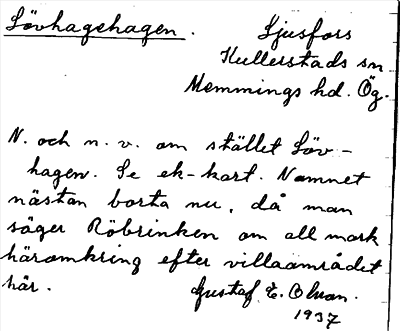 Lövhagehagen. Ljusfors
Kullerstads sn
Memmings hd. Ög.
N. och n. v. om stället Löv-
hagen. Se ek-kart. Namnet
nästan borta nu, då man
säger Röbrinken om all mark
häromkring efter villaområdet
här. Gustaf E. Olson.
1937